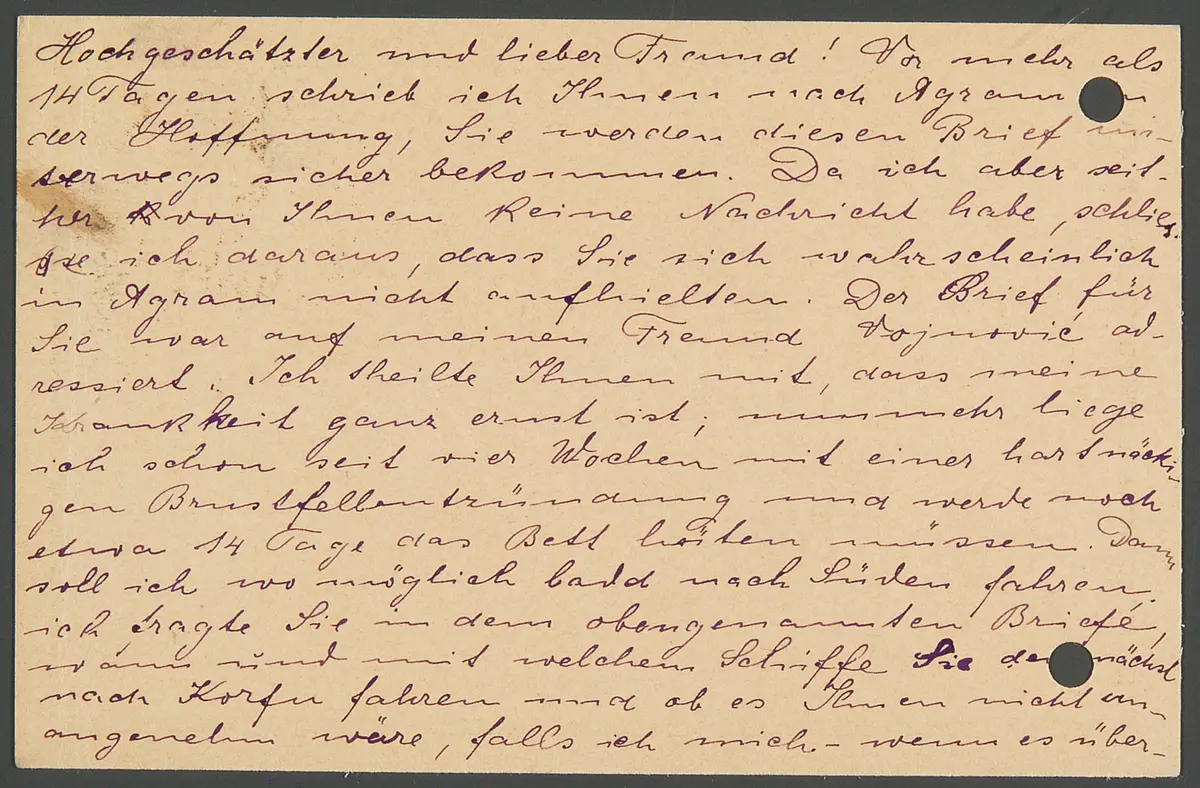 Hochgeschätzter und lieber Freund! Vor mehr als
14 Tagen schrieb ich Ihnen nach Agram
der Hoffnung, Sie werden diesen Brief un-
terwegs sicher bekommen. Da ich aber seit-
her von Ihnen keine Nachricht habe, schlies-
se ich daraus, dass Sie sich wahrscheinlich
in Agram nicht aufhielten. Der Brief für
Sie war auf meinen Freund Vojnović ad-
ressiert. Ich theilte Ihnen mit, dass meine
Krankheit ganz ernst ist; nunmehr liege
ich schon seit vier Wochen mit einer hartnäcki-
gen Brustfellentzündung und werde noch
etwa 14 Tage das Bett hüten müssen. Dann
soll ich wo möglich bald nach Süden fahren,
ich fragte Sie in dem obengenannten Briefe,
wann und mit welchem Schiffe Sie nächst
nach Korfu fahren und ob es Ihnen nicht un-
angenehm wäre, falls ich mich - wenn es über-